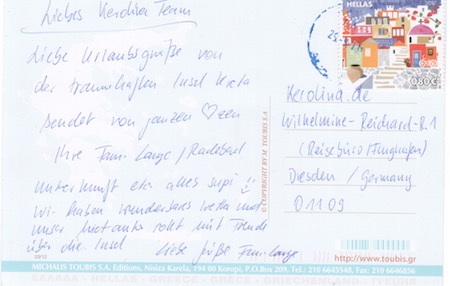 Liebes Kerolina Team
Liebe Urlaubsgrüße von
der traumhaften Insel Kreta
sendet von ganzen ♡en
Ihre Fam. Lange / Radebeul
Unterkunft etc. alles supi !!
Wir haben wunderbares Wetter und
unser Mietauto rollt mit Freude
über die Insel
Liebe Grüße Fam. Lange
HELLAS
0,80€
Kerolina.de
Wilhelmine-Reichard-R.1
(Reisebüro/Flughafen)
Dresden / Germany
01109
© COPYRIGHT BY M. TOUBIS S.A.
http://www.toubis.gr
MICHALIS TOUBIS S.A. Editions, Nisiza Karela, 194 00 Koropi, P.O.Box 209, Tel.: 210 6645548, Fax: 210 6646856